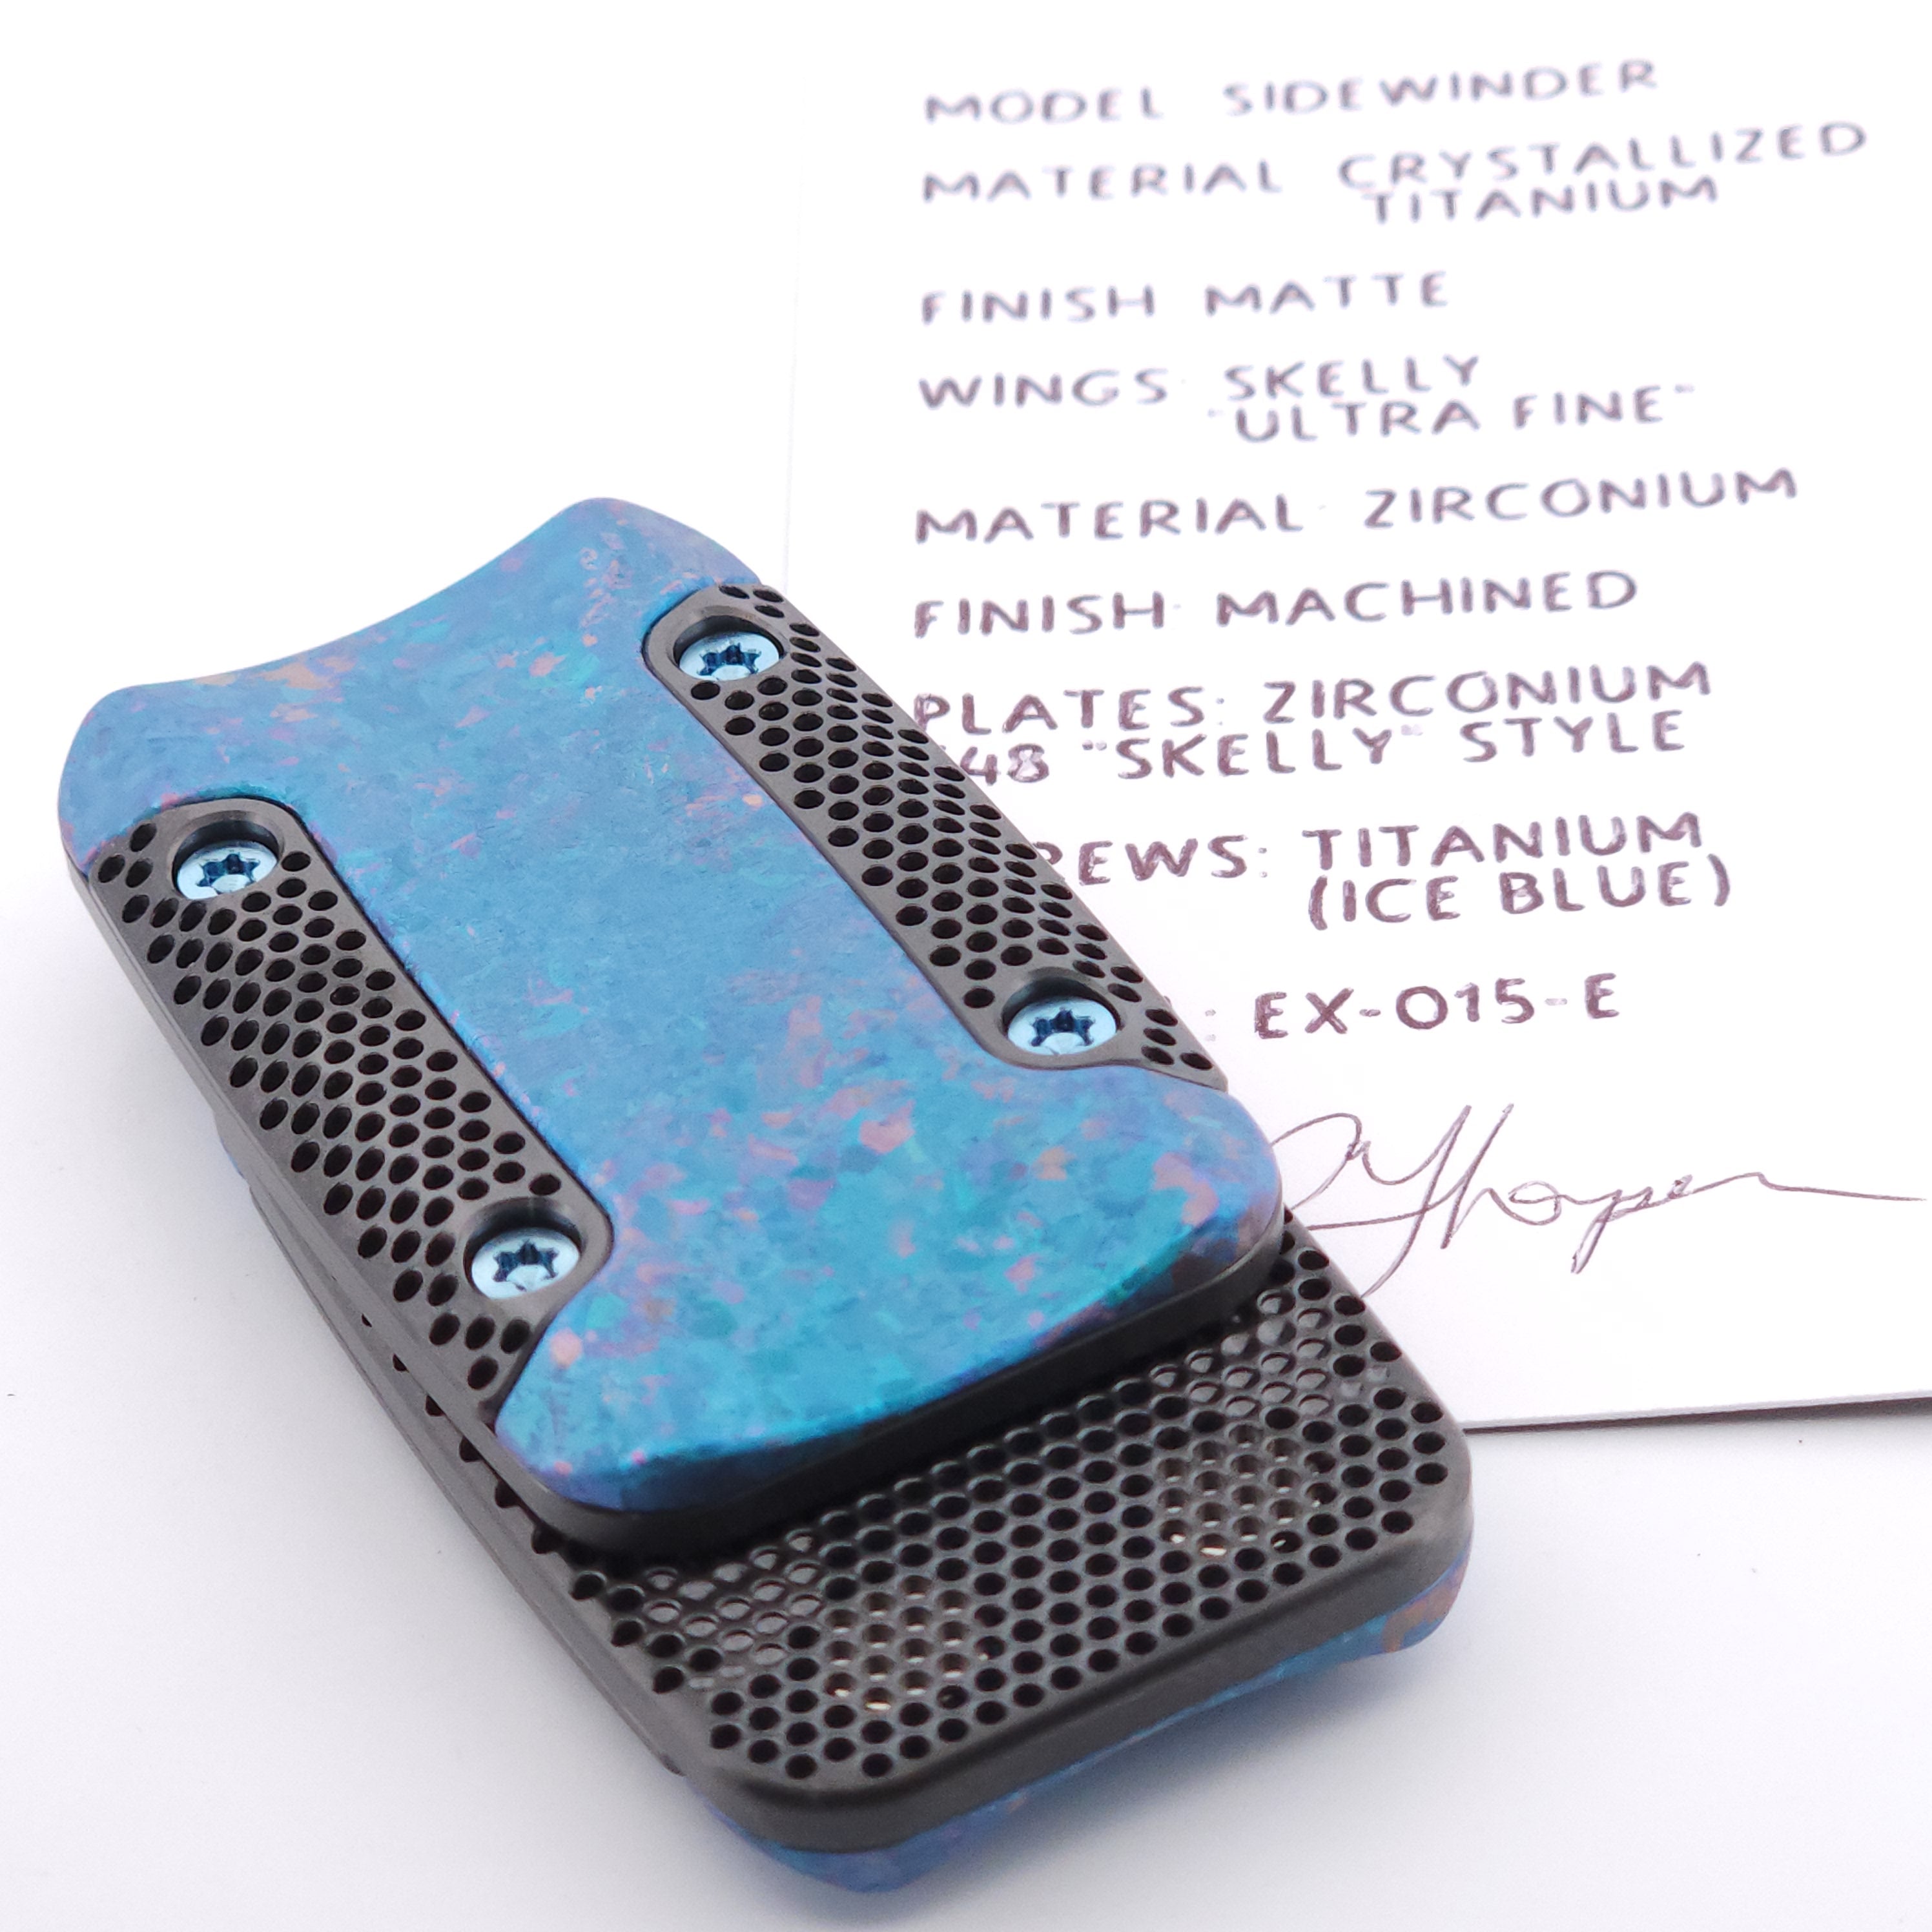 MODEL SIDEWINDER
MATERIAL CRYSTALLIZED
TITANIUM
FINISH MATTE
WINGS SKELLY
"ULTRA FINE"
MATERIAL ZIRCONIUM
FINISH MACHINED
PLATES: ZIRCONIUM
48 "SKELLY" STYLE
REWS: TITANIUM
(ICE BLUE)
: EX-015-E